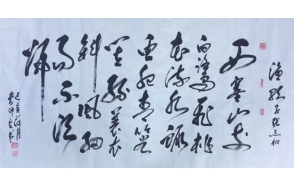 渔歌子张志和
西塞山前
白鹭飞桃
花流水鳜
鱼肥青箬
笠绿蓑衣
斜风细
雨不须
归